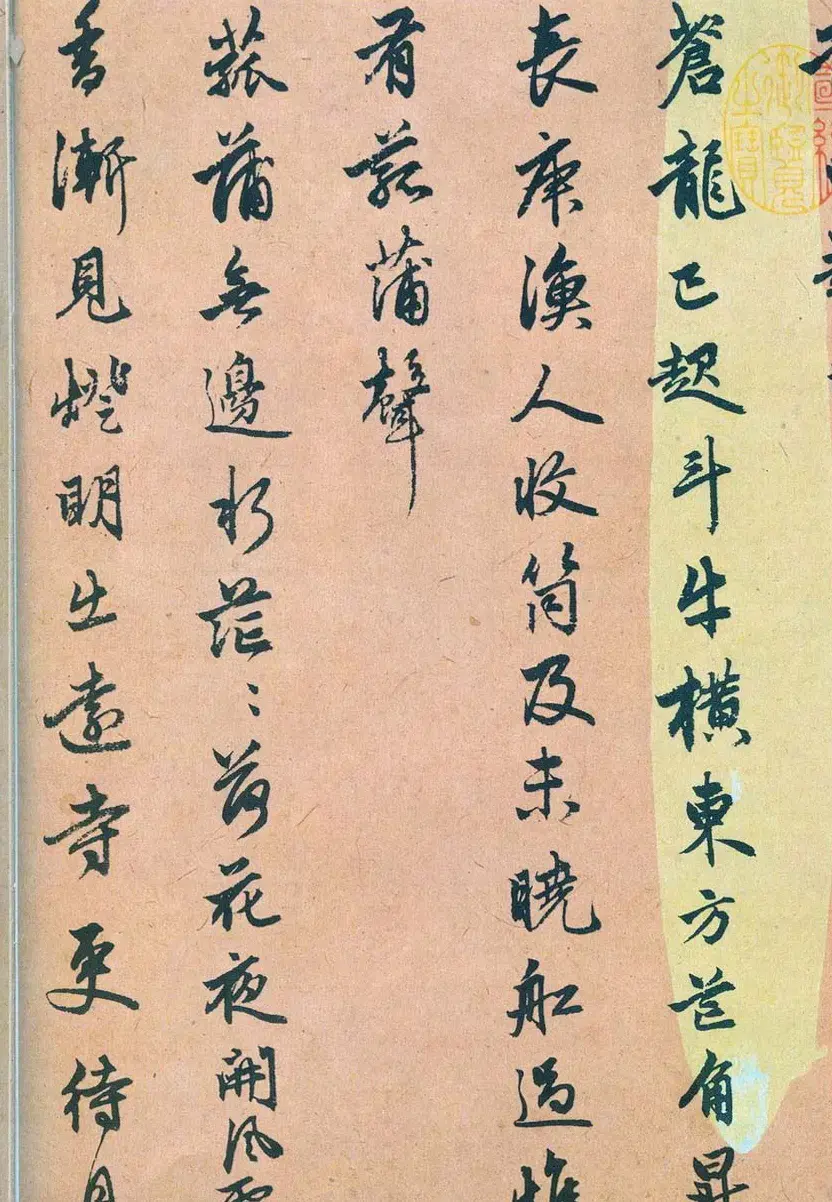 蒼龍已起斗牛橫東方芒角昇
長庚漁人收筒及未曉船過惟
有菰蒲聲
菰蒲無邊水茫〻荷花夜開風露
香漸見燈明出遠寺更待月
御覽
之寶